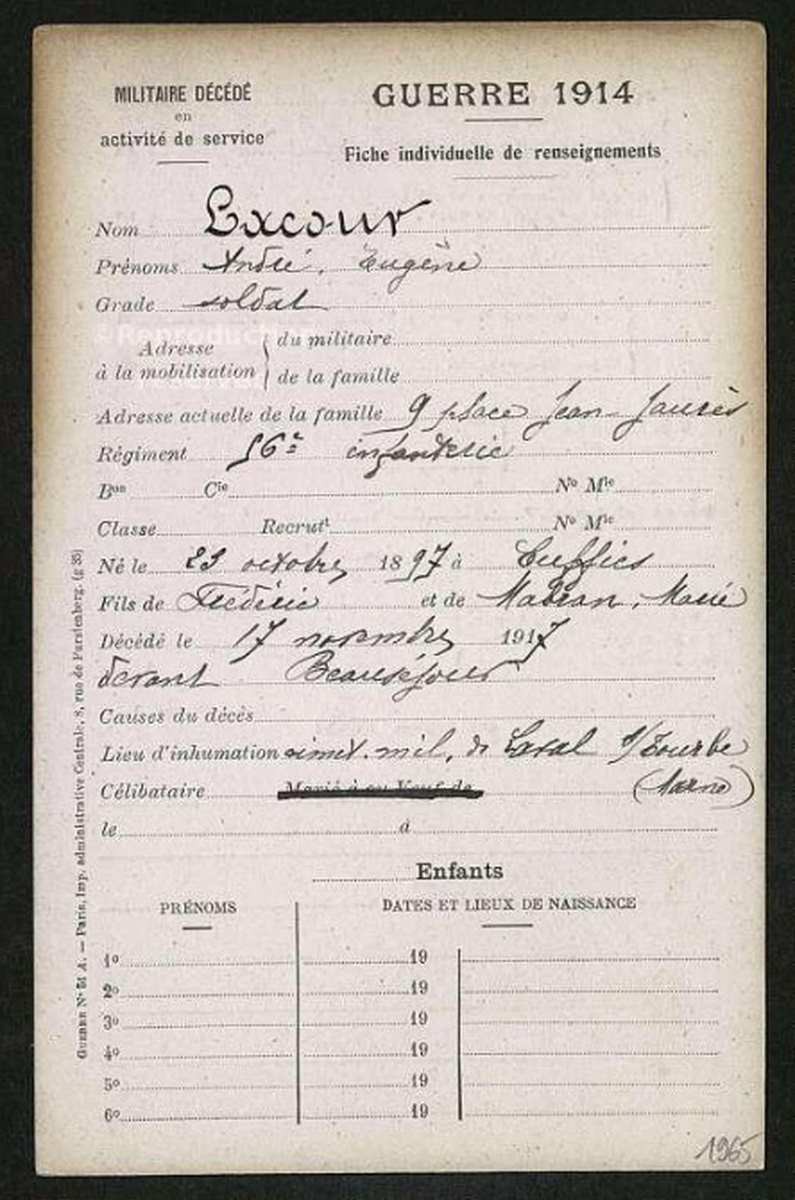 MILITAIRE DÉCÉDÉ
en
activité de service
GUERRE 1914
Fiche individuelle de renseignements
Nom Lacour
Prénoms André, Eugène
Grade soldat
Adresse à la mobilisation
du militaire
de la famille
Adresse actuelle de la famille 9 place Jean Jaurès
Régiment 56e infanterie
Bon Cie No Mle
Classe Recrutt No Mle
Né le 23 octobre 1897 à Cuffies
Fils de Frédéric et de Marie
Décédé le 17 novembre 1917
devant Beauséjour
Causes du décès
Lieu d'inhumation cimet. mil. de Laval s/Tourbe
Célibataire (Marne)
le à
Enfants
PRÉNOMS DATES ET LIEUX DE NAISSANCE
1o 19
2o 19
3o 19
4o 19
5o 19
6o 19
GUERRE No 51 A. — Paris, Imp. administrative Centrale, 8, rue de Furstenberg. (g 35)
1965